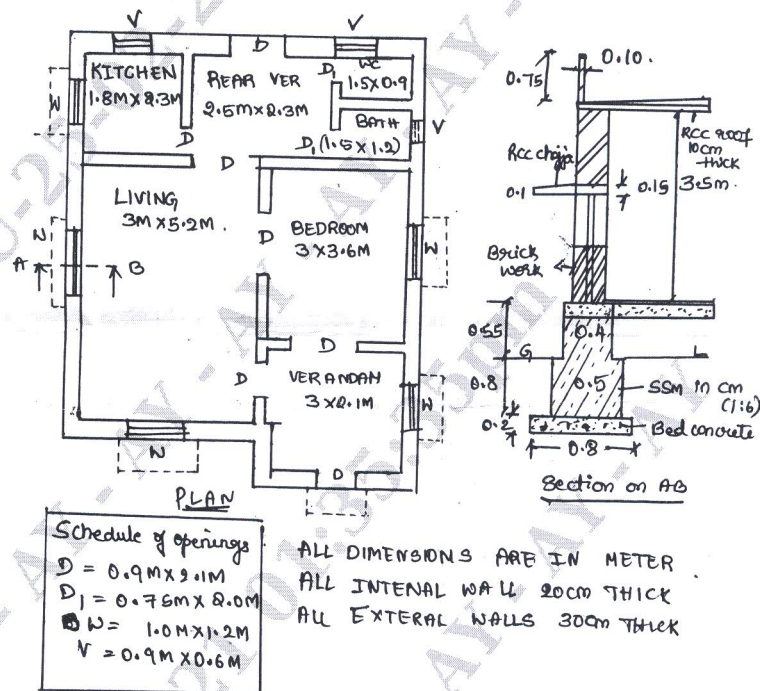 V
D
V
KITCHEN
1.8M×2.3M
REAR VER
2.5M×2.3M
WC
1.5×0.9
D1
W
D
BATH
D1 (1.5×1.2)
V
D
LIVING
3M×5.2M
BEDROOM
3×3.6M
D
W
W
A
B
D
VERANDAH
3×2.1M
D
W
W
D
PLAN
0.75
0.10.
RCC roof
10cm
thick
RCC chajja
0.1
0.15
3.5m.
Brick
work
0.55
0.4
G
L
0.8
0.5
SSM in cm
(1:6)
0.2
Bed concrete
0.8
Section on AB
Schedule of openings
D = 0.9M×2.1M
D1 = 0.75M×2.0M
W = 1.0M×1.2M
V = 0.9M×0.6M
ALL DIMENSIONS ARE IN METER
ALL INTENAL WALL 20cm THICK
ALL EXTERAL WALLS 30cm THICK